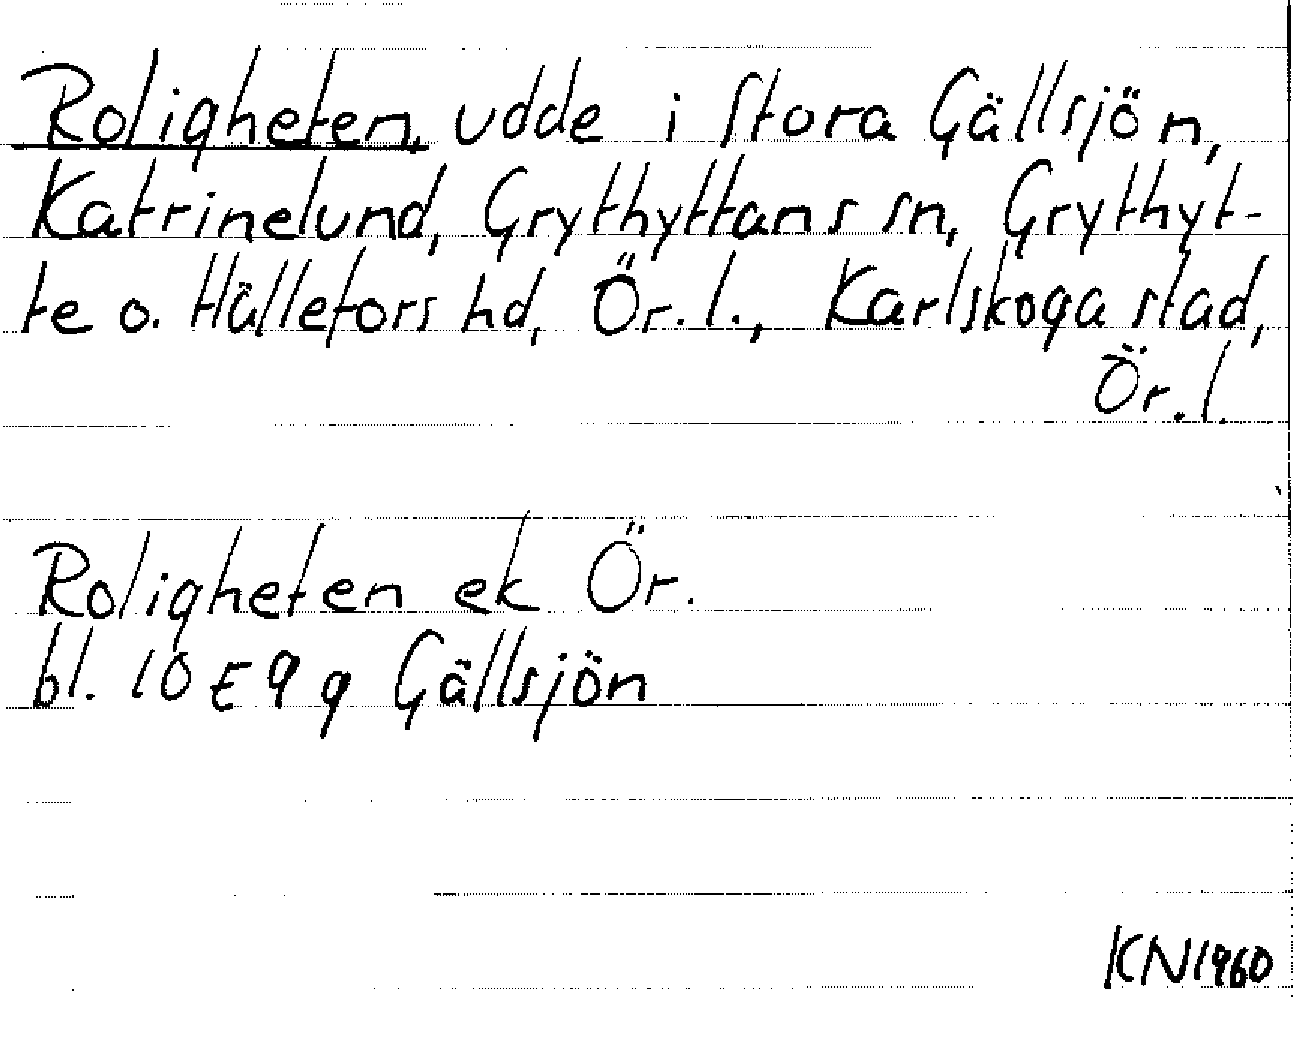 Roligheten, udde i Stora Gällsjön,
Katrinelund, Grythyttans sn, Grythyt-
te o. Hällefors hd, Ör. l., Karlskoga stad,
Ör. l.
Roligheten ek Ör.
bl. 10 E 9 g Gällsjön
KN 1960